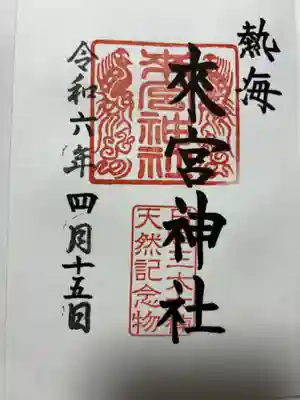 熱海
來宮神社
來宮神社
天然記念物
令和六年 四月十五日